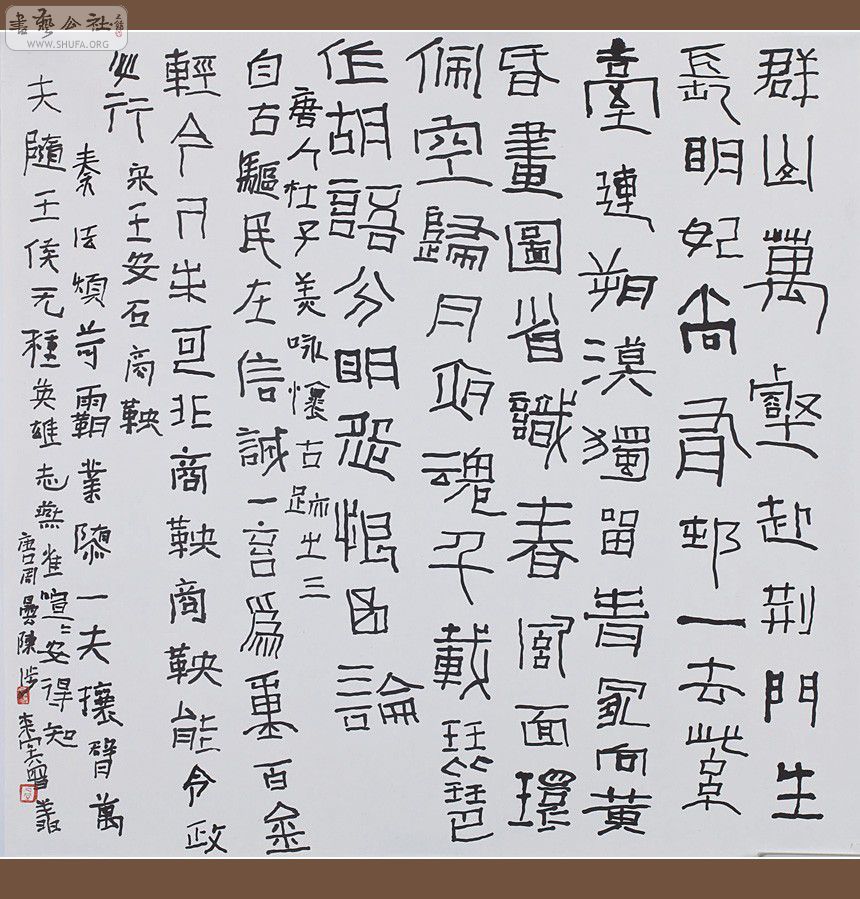 書藝公社
WWW.SHUFA.ORG
群山萬壑赴荆門生
長明妃尚有邨一去紫
臺連朔漠獨留青冢向黃
昏畫圖省識春風面環
佩空歸月夜魂千載琵琶
作胡語分明怨恨曲論
唐人杜子美咏懷古跡之三
自古驅民在信誠一言爲重百金
輕今人未可非商鞅商鞅能令政
必行 宋王安石商鞅
秦法煩苛霸業隳一夫攘臂萬
夫隨王侯无種英雄志燕雀喧〻安得知
唐周曇陳涉